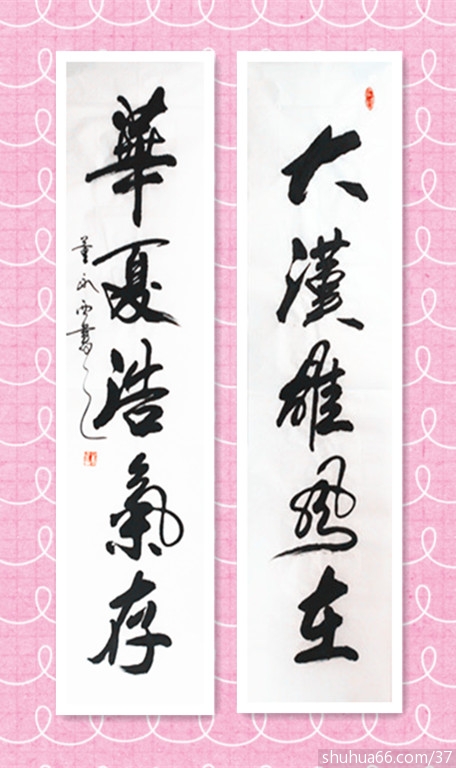 大漢雄風在
華夏浩氣存
shuhua66.com/37